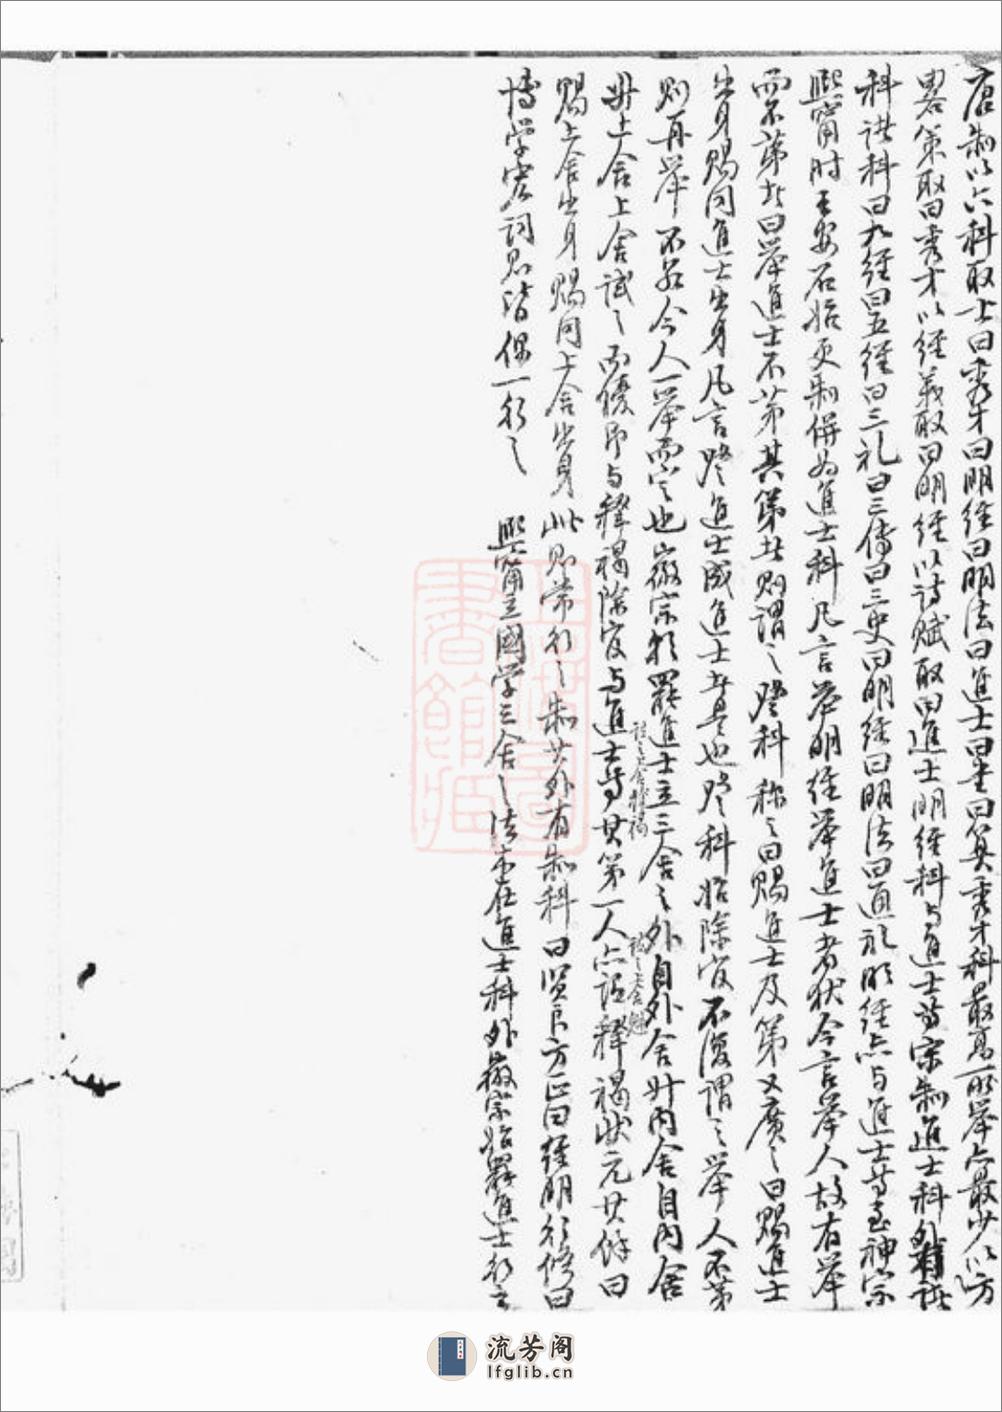 唐制以六科取士曰秀才曰明经曰明法曰進士曰書曰算秀才科最髙所举亦最少以方
畧策取曰秀才以经義取曰明经以诗赋取曰進士明经科与進士等宋制進士科外有諸
科諸科曰九经曰五经曰三礼曰三傳曰三史曰明经曰明法曰通礼明经亦与進士等至神宗
熙甯时王安石始更制併为進士科凡言举明经举進士者犹今言举人故有举
而不第者曰举進士不第其第者则謂之登科称之曰赐進士及第又廣之曰赐進士
出身赐同進士出身凡言登進士成進士者是也登科始除官不復謂之举人不第
则再举不若今人一举而定也徽宗欲罷進士立三舍之外自外舍升内舍自内舍
謂之上舍釋褐 謂之上舍魁
升上舍上舍试之而優即与釋褐除官与進士等其第一人亦謂釋褐状元其餘曰
赐上舍出身赐同上舍出身此则常行之制其外有制科曰贤良方正曰经明行修曰
博学宏词则皆偶一行之 熙甯立國学三舍之法本在進士科外徽宗始罷進士行之
流芳阁
lfglib.cn